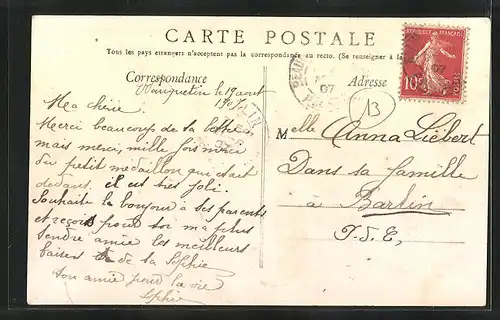 CARTE POSTALE
Tous les pays étrangers n'acceptent pas la correspondance au recto. (Se renseigner à la
Correspondance
Adresse
RÉPUBLIQUE FRANÇAISE
10c
POSTES
07
13
le 19 aout
1907
Ma chérie
Merci beaucoup de la lettre,
mais merci, mille fois merci
du petit médaillon qui était
dedans, il est très joli.
Souhaite le bonjour à tes parents
et reçois pour toi ma plus
tendre amie les meilleurs
baisers de ta Sophie
ton amie pour la vie
Sophie
Melle Anna Liébert
Dans sa famille
à Barlin
P.d.C,